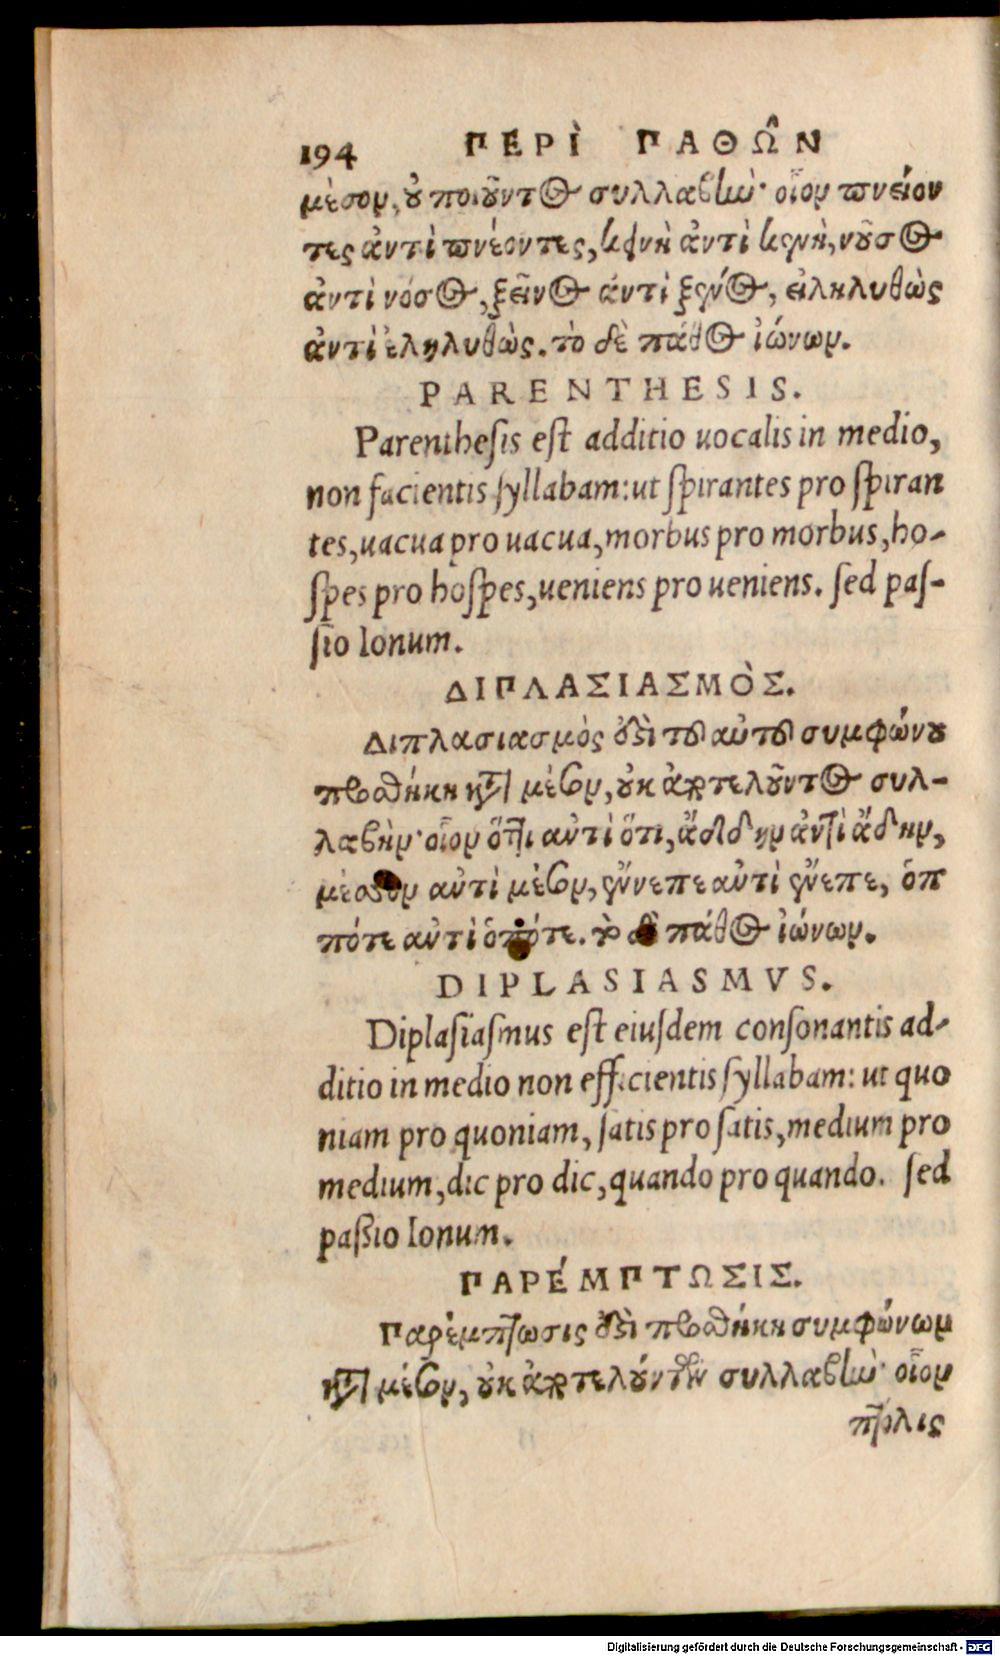 194 ΠΕΡῚ ΠΑΘΩ͂Ν
μέσον, οὐ ποιοῦντος συλλαβὴν· οἷον πνείον
τες ἀντὶ πνέοντες, κεινὴ ἀντὶ κενὴ, νοῦσος
ἀντὶ νόσος, ξεῖνος ἀντὶ ξένος, εἰληλυθὼς
ἀντὶ ἐληλυθὼς. τὸ δὲ πάθος ἰώνων.
PARENTHESIS.
Parenthesis est additio uocalis in medio,
non facientis syllabam: ut spirantes pro spiran
tes, uacua pro uacua, morbus pro morbus, ho-
spes pro hospes, ueniens pro ueniens. sed pas-
sio Ionum.
ΔΙΠΛΑΣΙΑΣΜῸΣ.
Διπλασιασμὸς ἐστὶ τοῦ αὐτοῦ συμφώνου
προσθήκη κατὰ μέσον, οὐκ ἀποτελοῦντος συλ-
λαβὴν· οἷον ὅττι ἀντὶ ὅτι, ἄδδην ἀντὶ ἄδην,
μέσσον ἀντὶ μέσον, ἔννεπε ἀντὶ ἔνεπε, ὁπ
πότε ἀντὶ ὁπότε. τὸ δὲ πάθος ἰώνων.
DIPLASIASMVS.
Diplasiasmus est eiusdem consonantis ad-
ditio in medio non efficientis syllabam: ut quo
niam pro quoniam, satis pro satis, medium pro
medium, dic pro dic, quando pro quando. sed
passio Ionum.
ΠΑΡΈΜΠΤΩΣΙΣ.
Παρέμπτωσις ἐστὶ προσθήκη συμφώνων
κατὰ μέσον, οὐκ ἀποτελούντων συλλαβὴν· οἷον
πτόλις
Digitalisierung gefördert durch die Deutsche Forschungsgemeinschaft - DFG